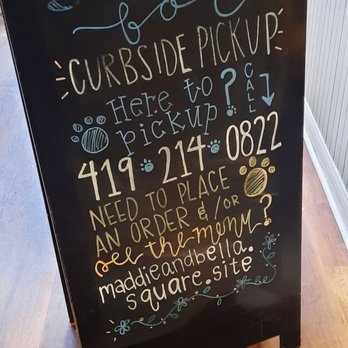 CURBSIDE PICKUP
Here to
pickup?
CALL
419·214·0822
NEED TO PLACE
AN ORDER &/OR
see the menu?
maddieandbella.
square.site